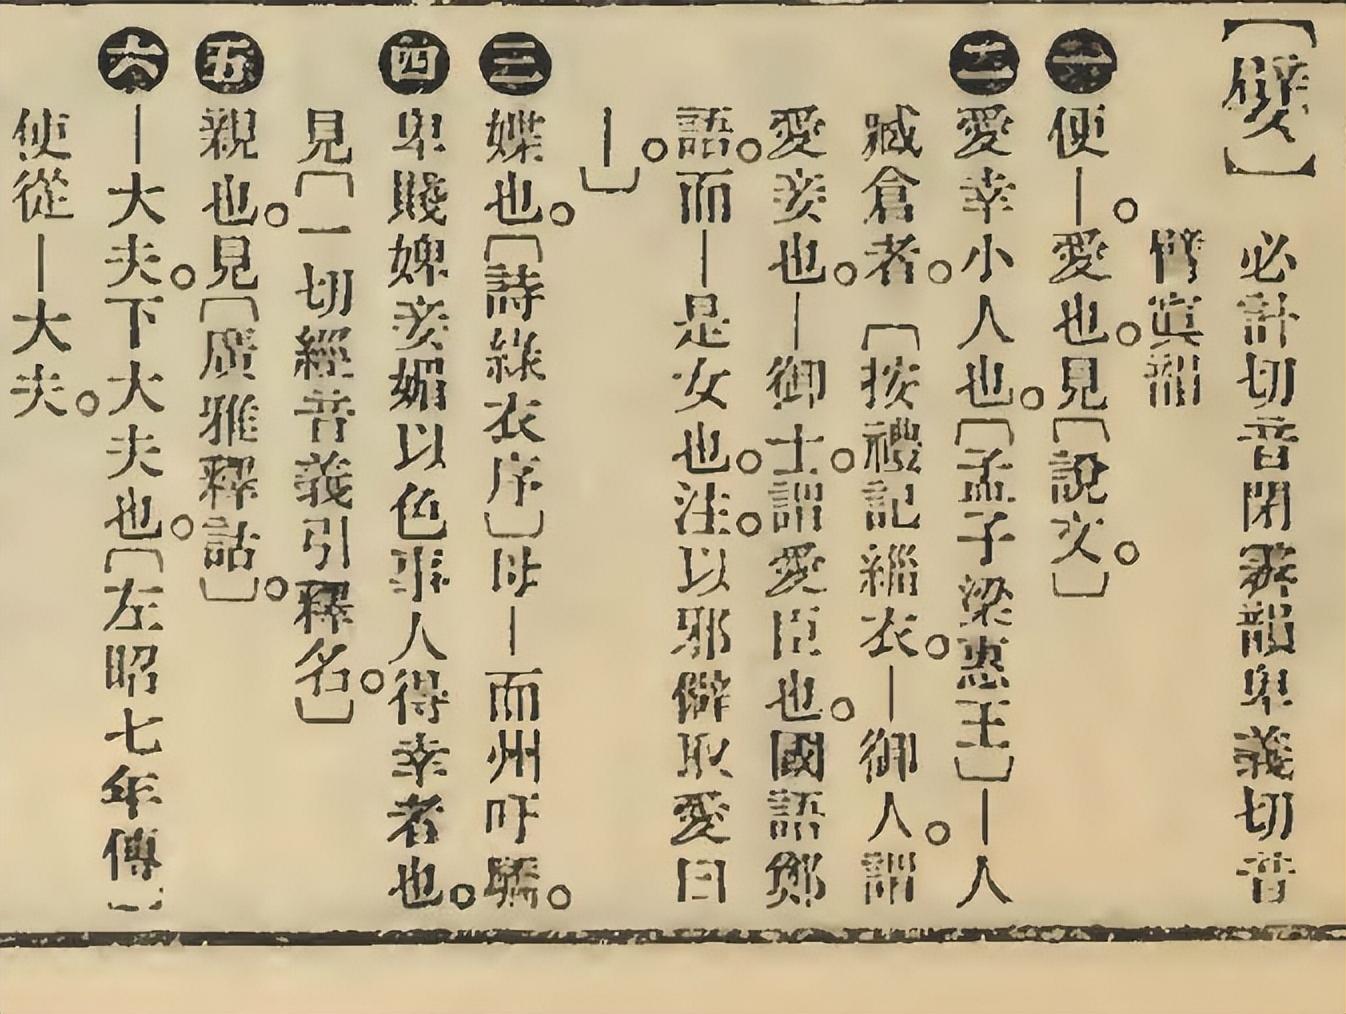 【嬖】必計切音閉霽韻卑義切音
臂寘韻
㊀便｜。愛也。見〔說文。〕
㊁愛幸小人也。〔孟子梁惠王〕｜人
臧倉者。〔按禮記緇衣。｜御人。謂
愛妾也。｜御士。謂愛臣也。國語鄭
語。而｜是女也。注。以邪僻取愛曰
｜。〕
㊂媟也。〔詩綠衣序〕母｜而州吁驕。
㊃卑賤婢妾媚以色事人得幸者也。
見〔一切經音義引釋名。〕
㊄親也。見〔廣雅釋詁〕。
㊅｜大夫。下大夫也。〔左昭七年傳〕
使從｜大夫。